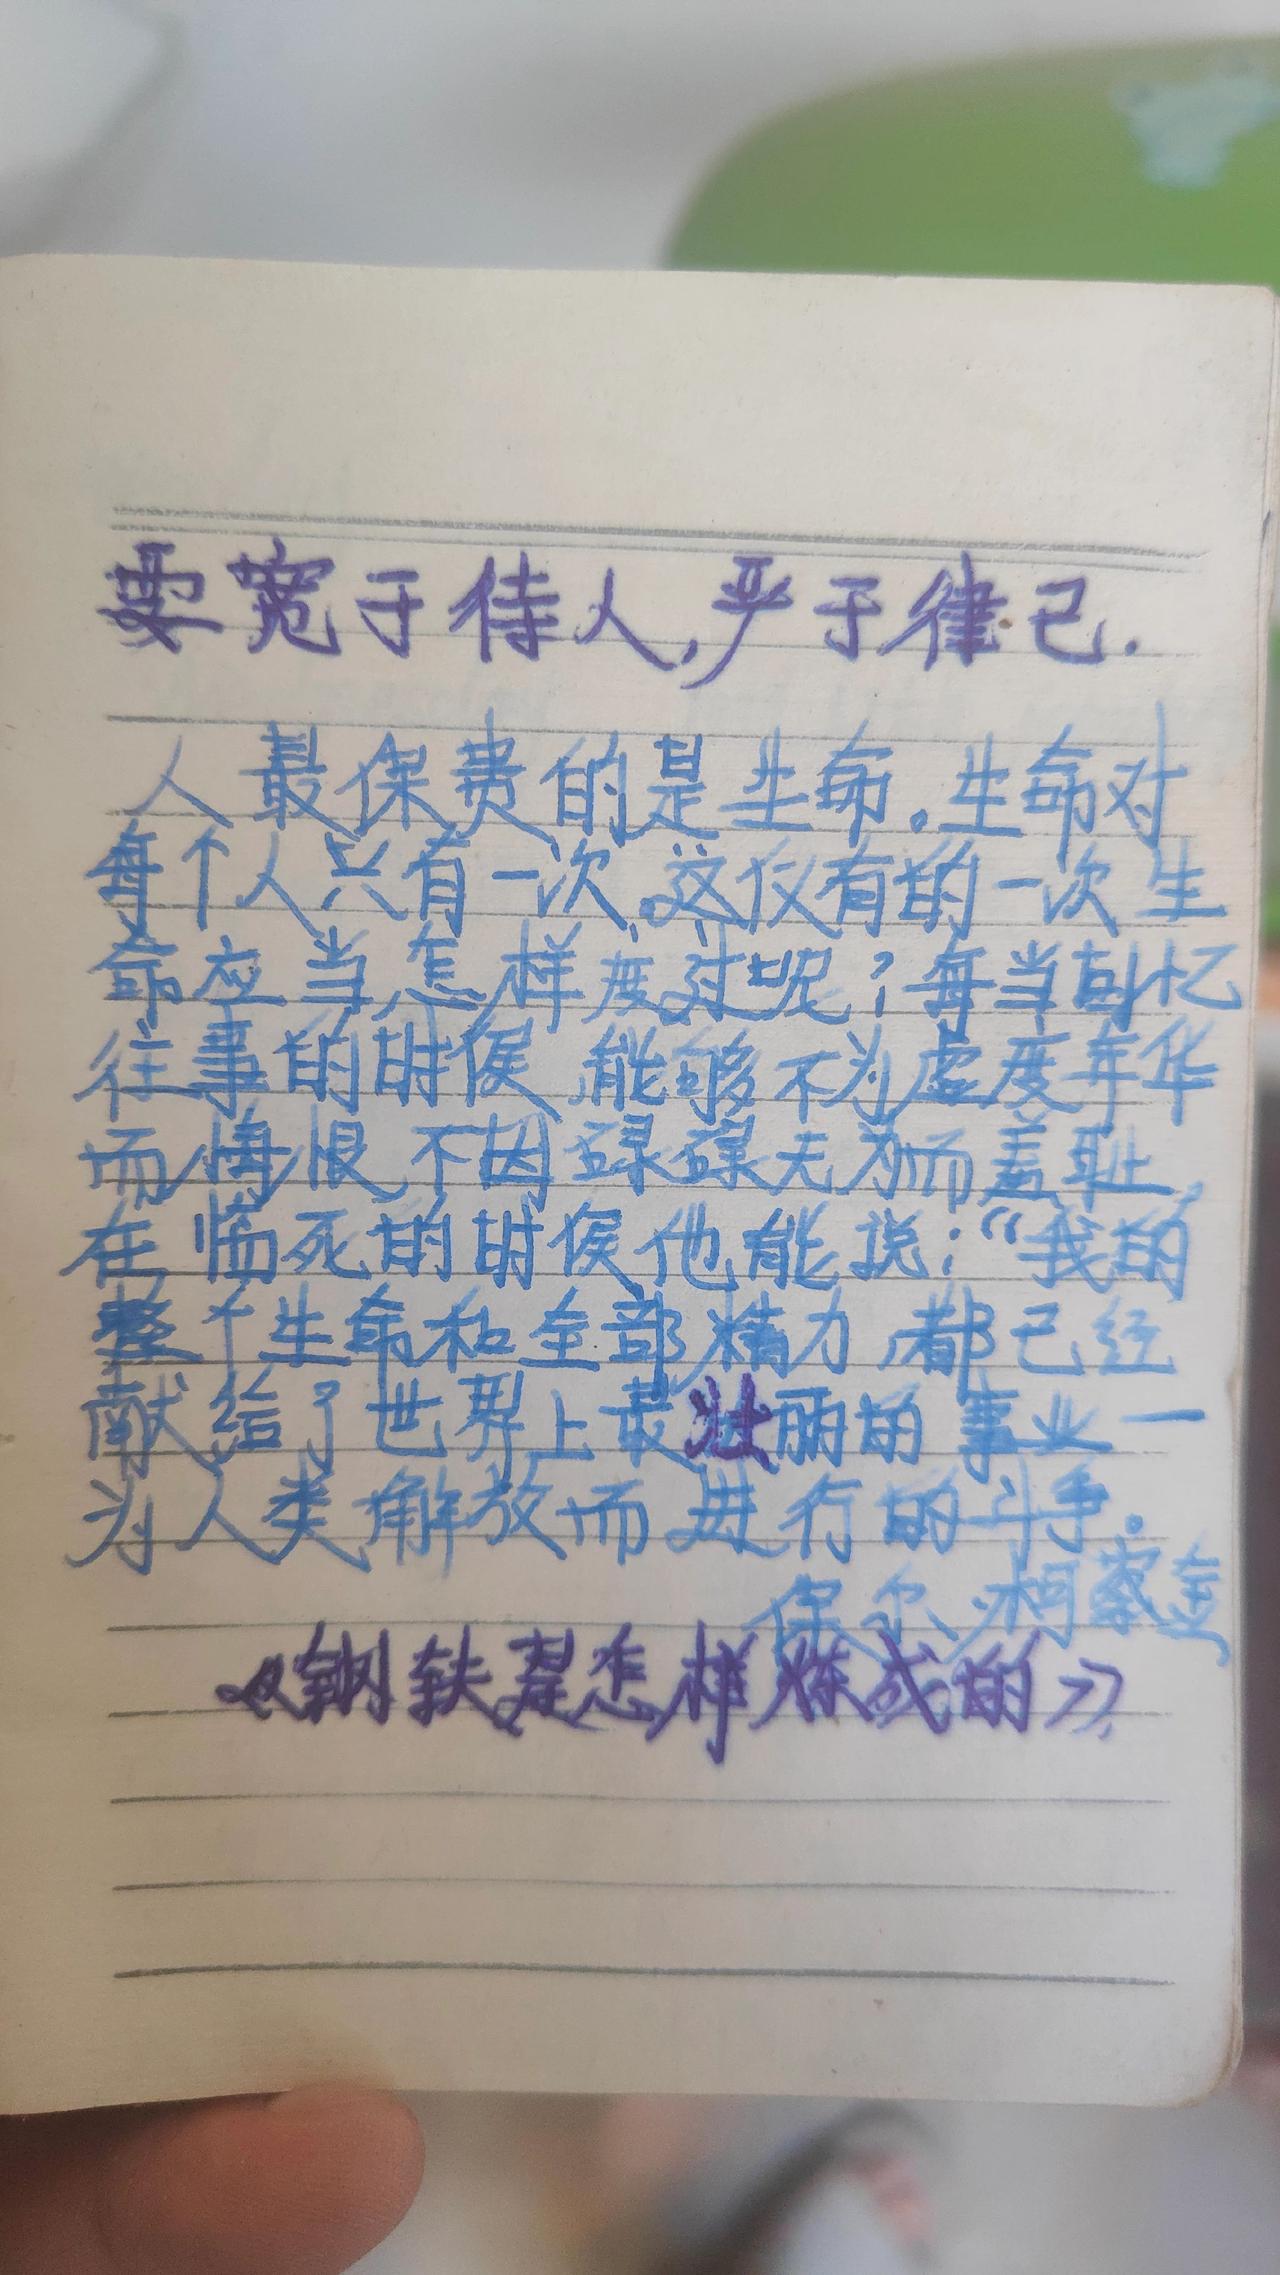 要宽于待人,严于律己.
人最保贵的是生命。生命对
每个人只有一次,这仅有的一次生
命应当怎样度过呢?每当回忆
往事的时候,能够不为虚度年华
而悔恨,不因碌碌无为而羞耻,
在临死的时候他能说:“我的
整个生命和全部精力,都已经
献给了世界上最壮丽的事业一
为人类解放而进行的斗争。
保尔·柯察金
《钢铁是怎样炼成的》